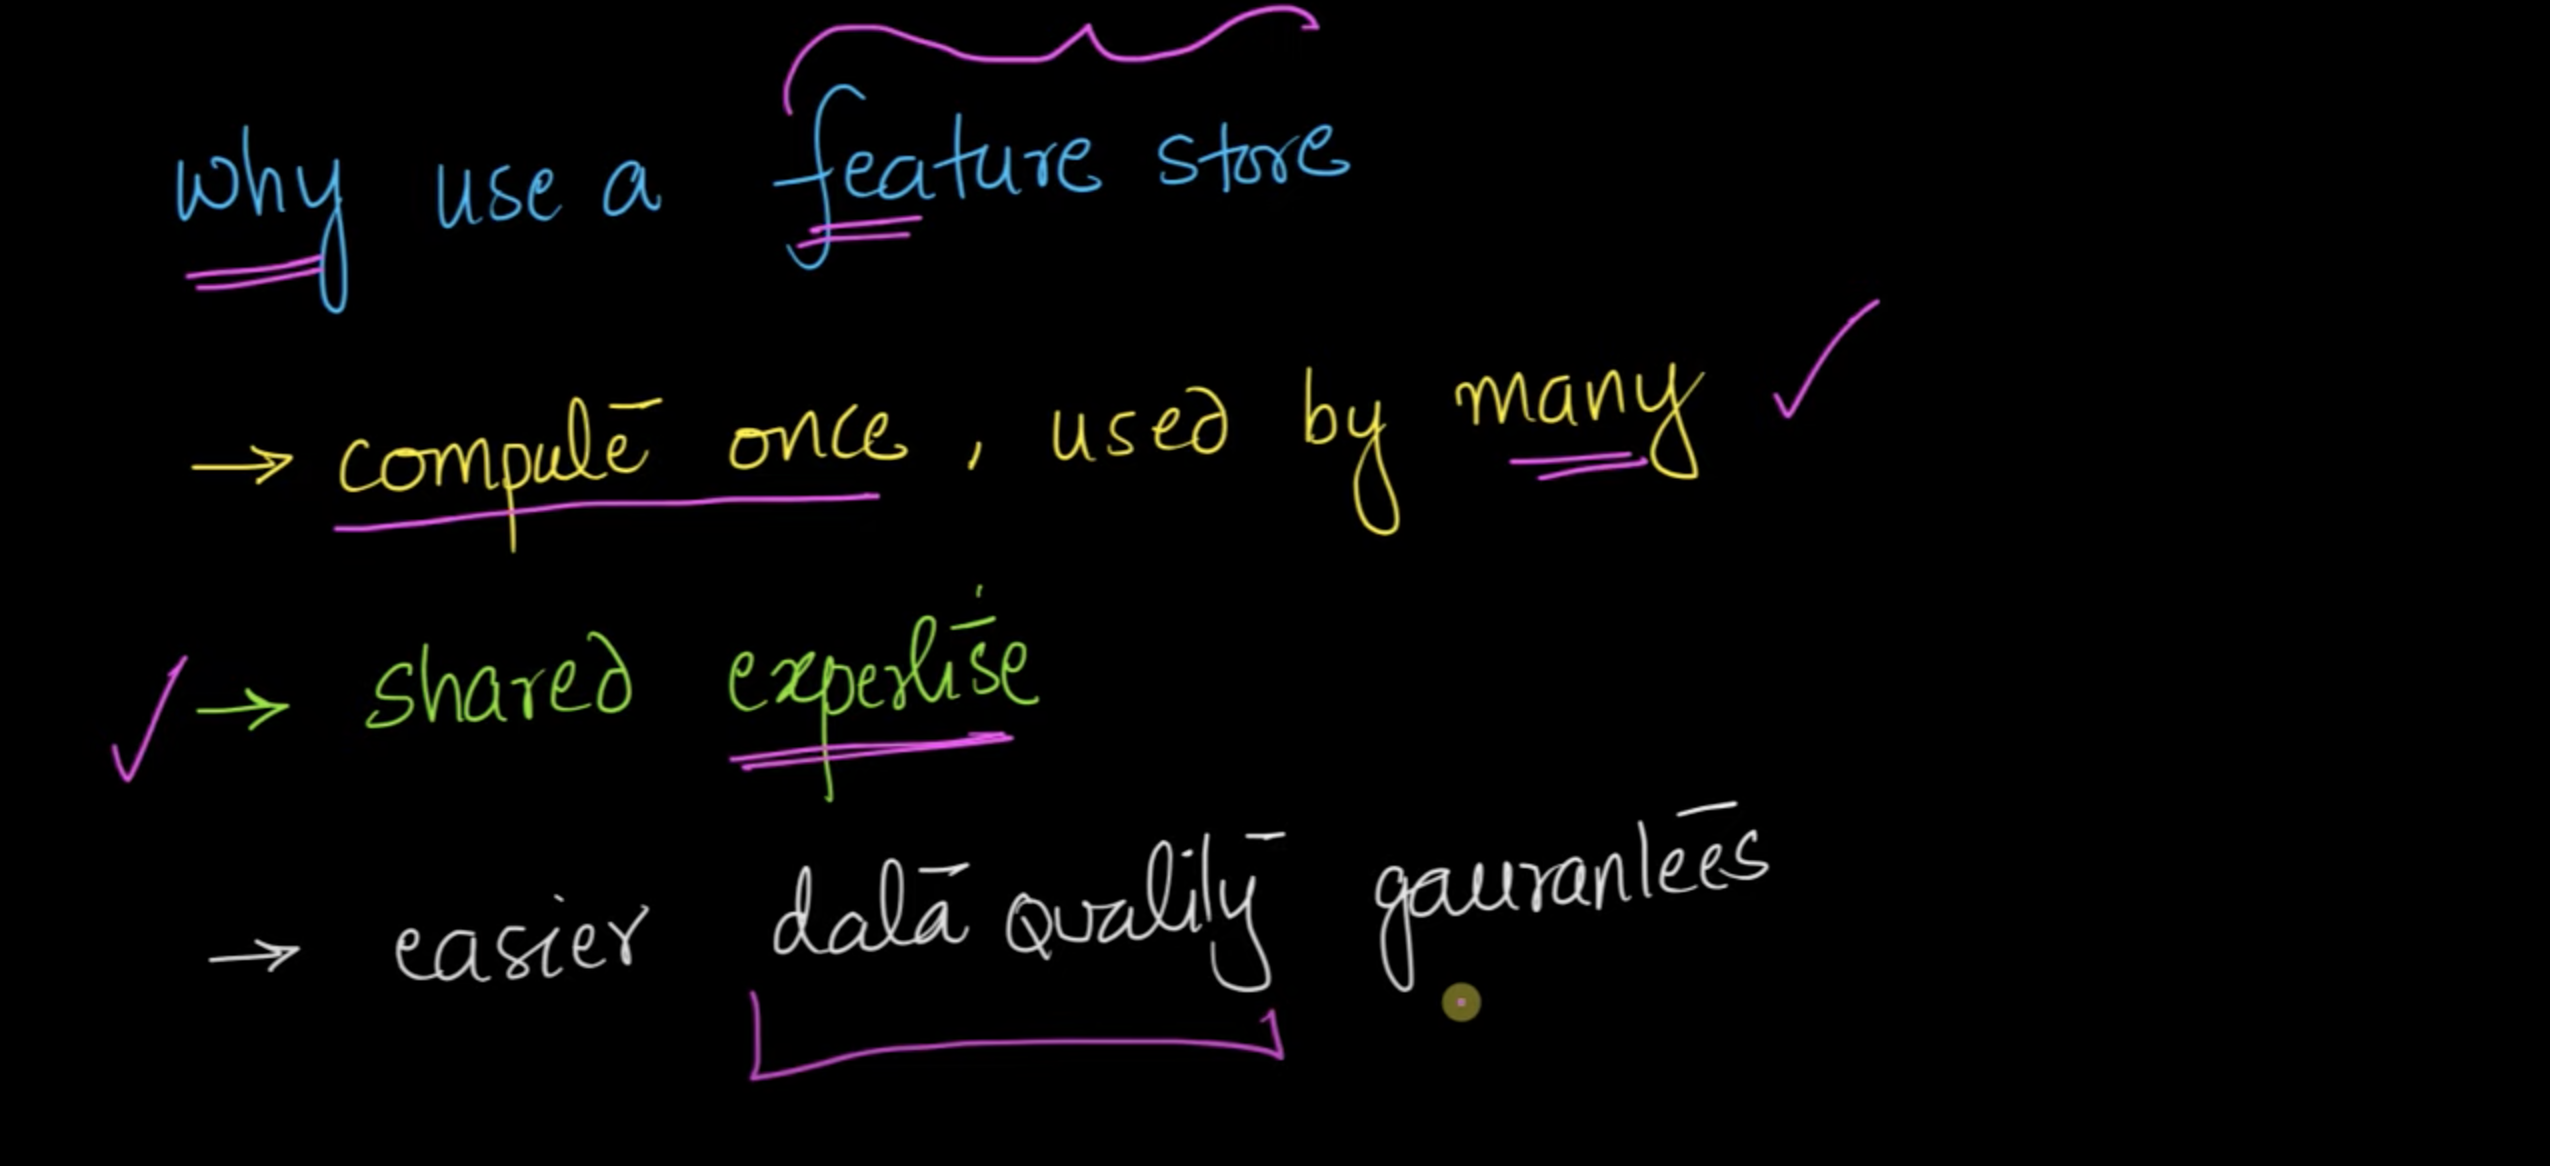 why use a feature store
→ compute once, used by many ✓
✓ → shared expertise
→ easier data quality gaurantees